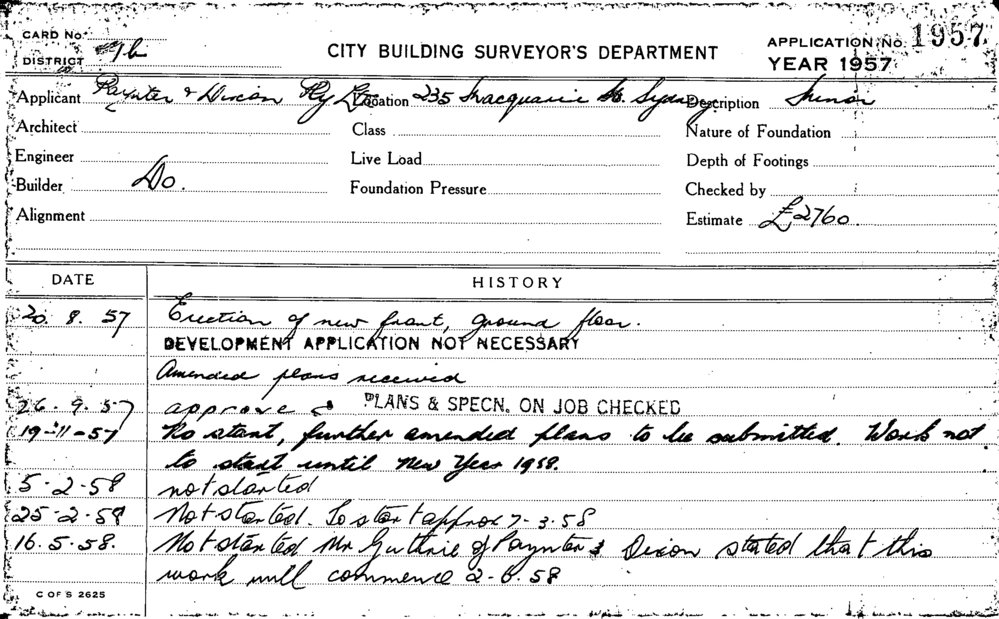 CARD No.
CITY BUILDING SURVEYOR'S DEPARTMENT
APPLICATION No. 1957
DISTRICT 9b
YEAR 1957
Applicant Paynter & Dixon Pty Ltd Location 235 Macquarie St. Sydney Description Minor
Architect Class Nature of Foundation
Engineer Live Load Depth of Footings
Builder Do. Foundation Pressure Checked by
Alignment Estimate £2760.
DATE HISTORY
20. 8. 57 Erection of new front, ground floor.
DEVELOPMENT APPLICATION NOT NECESSARY
Amended plans received
26. 9. 57 approve PLANS & SPECN. ON JOB CHECKED
19-11-57 No start, further amended plans to be submitted. Work not
to start until New Year 1958.
5-2-58 not started
25-2-58 Not started. To start approx 7-3-58
16.5.58. Not started Mr Guthrie of Paynter & Dixon stated that this
work will commence 2-6-58
C OF S 2625